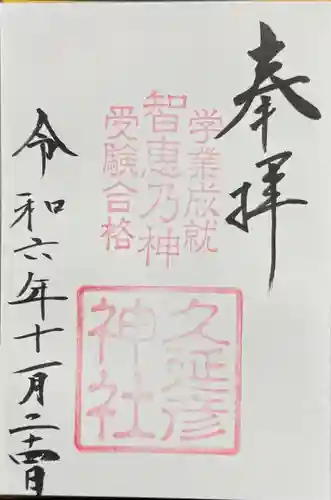 奉拝
学業成就
智恵乃神
受験合格
久延彦
神社
令和六年十一月二十四日